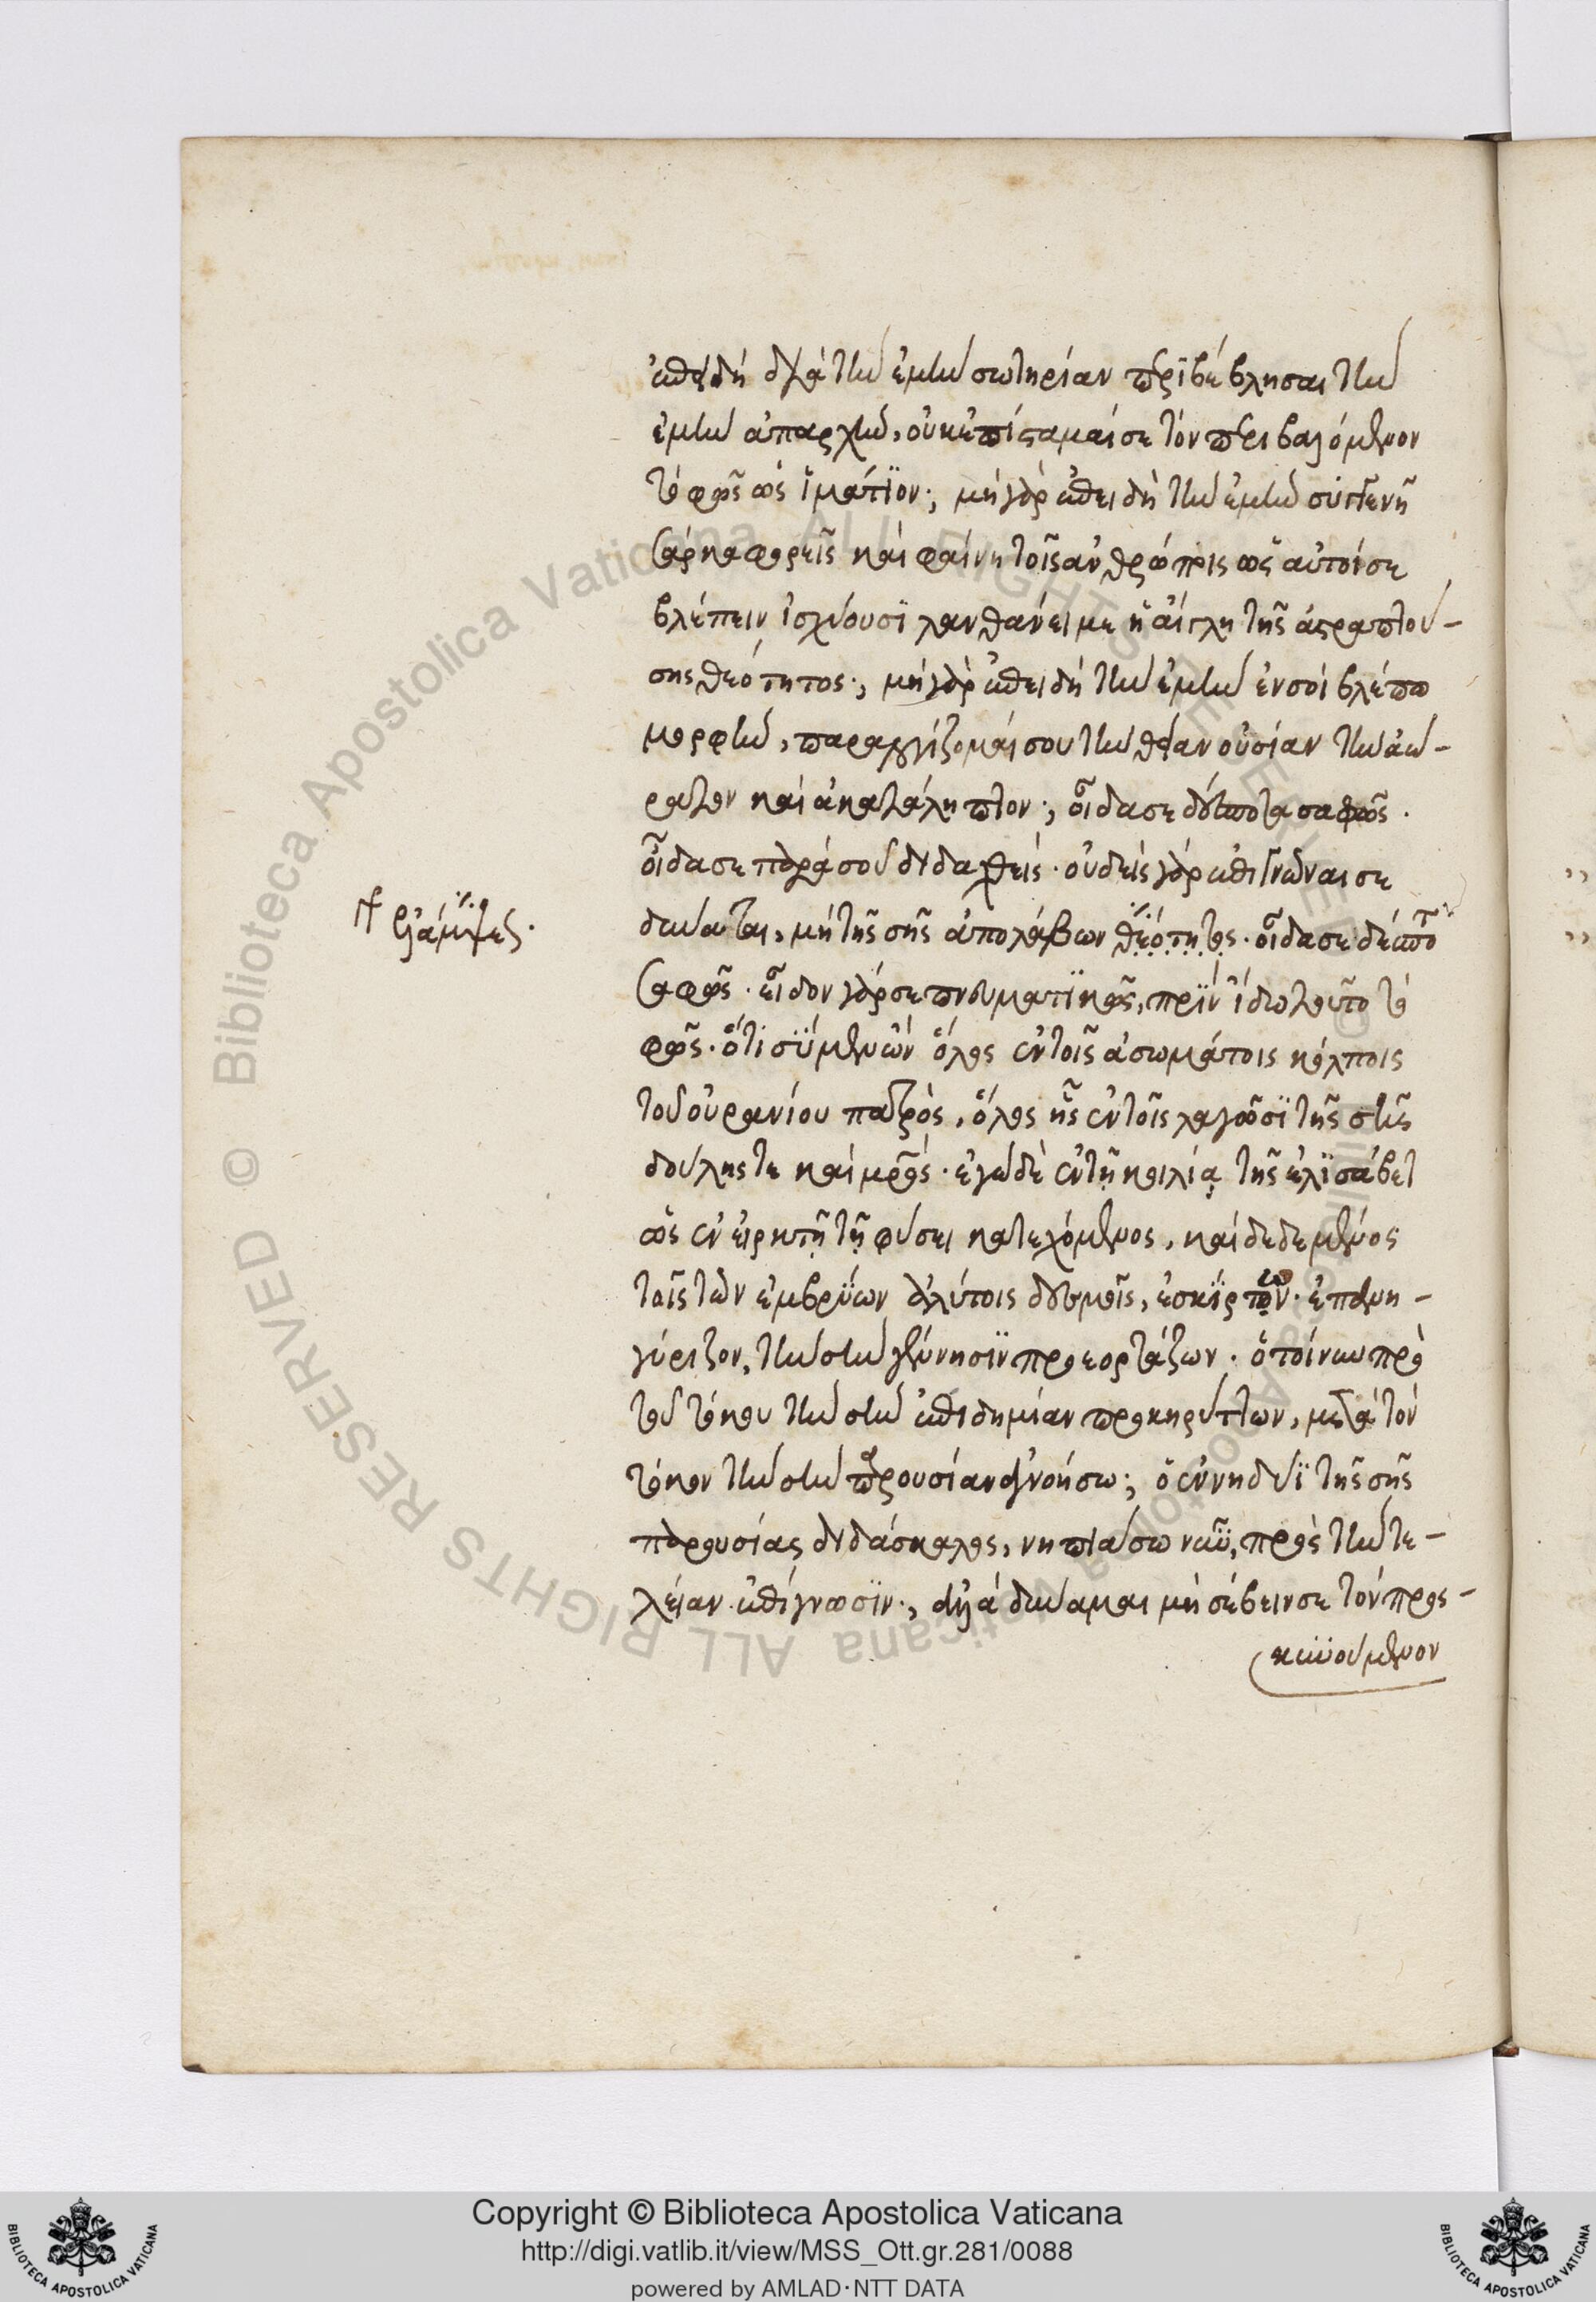 ἐπειδὴ διὰ τὴν ἐμὴν σωτηρίαν περϊβέβλησαι τὴν
ἐμὴν ἀπαρχὴν, οὐκ ἐπίσταμαί σε τὸν περιβαλόμενον
τὸ φῶς ὡς ἱμάτϊον; μὴ γὰρ ἐπειδὴ τὴν ἐμὴν συγγενῆ
σάρκα φορεῖς καὶ φαίνη τοῖς ἀνθρώποις ὡς αὐτοί σε
βλέπειν ἰσχύουσϊ λανθάνει με ἡ αἴγλη τῆς ἀστραπτού-
σης θεότητος; μὴ γὰρ ἐπειδὴ τὴν ἐμὴν ἐν σοὶ βλέπω
μορφὴν, παραλογίζομαί σου τὴν θείαν οὐσίαν τὴν ἀώ-
ρατον καὶ ἀκατάληπτον; οἶδα σε δέσποτα σαφῶς.
οἶδα σε παρὰ σοῦ διδαχθείς. οὐδεὶς γὰρ ἐπιγνῶναι σε
δύναται, μὴ τῆς σῆς ἀπολάβων θεότητος. οἶδα σε δέσποτα
ἐλάμψεως.
σαφῶς. εἶδον γάρ σε πνευματϊκῶς, πρϊν ἴδω τοῦτο τὸ
φῶς. ὅτι σϋ μὲν ὢν ὅλος ἐν τοῖς ἀσωμάτοις κόλποις
τοῦ οὐρανίου πατρὸς, ὅλος ἦς ἐν τοῖς λαγῶσϊ τῆς σῆς
δούλης τε καὶ μητρός. ἐγὼ δὲ ἐν τῇ κοιλίᾳ τῆς ἐλϊσάβετ
ὡς ἐν εἱρκτῇ τῇ φύσει κατεχόμενος, καὶ δεδεμένος
τοῖς τῶν ἐμβρϋων ἀλύτοις δεσμοῖς, ἐσκϊρτων. ἐπανη-
γύριζον, τὴν σὴν γέννησϊν προεορτάζων. ὁ τοίνυν πρὸ
τοῦ τόκου τὴν σὴν ἐπιδημίαν προκηρύττων, μετὰ τὸν
τόκον τὴν σὴν παρουσίαν ἀγνοήσω; ὁ ἐν νηδύϊ τῆς σῆς
παρουσίας διδάσκαλος, νηπιάσω νῦν, πρὸς τὴν τε-
λείαν ἐπίγνωσϊν; ἀλλὰ δύναμαι μὴ σέβειν σε τὸν προς-
κυνούμενον
Copyright © Biblioteca Apostolica Vaticana
http://digi.vatlib.it/view/MSS_Ott.gr.281/0088
powered by AMLAD·NTT DATA